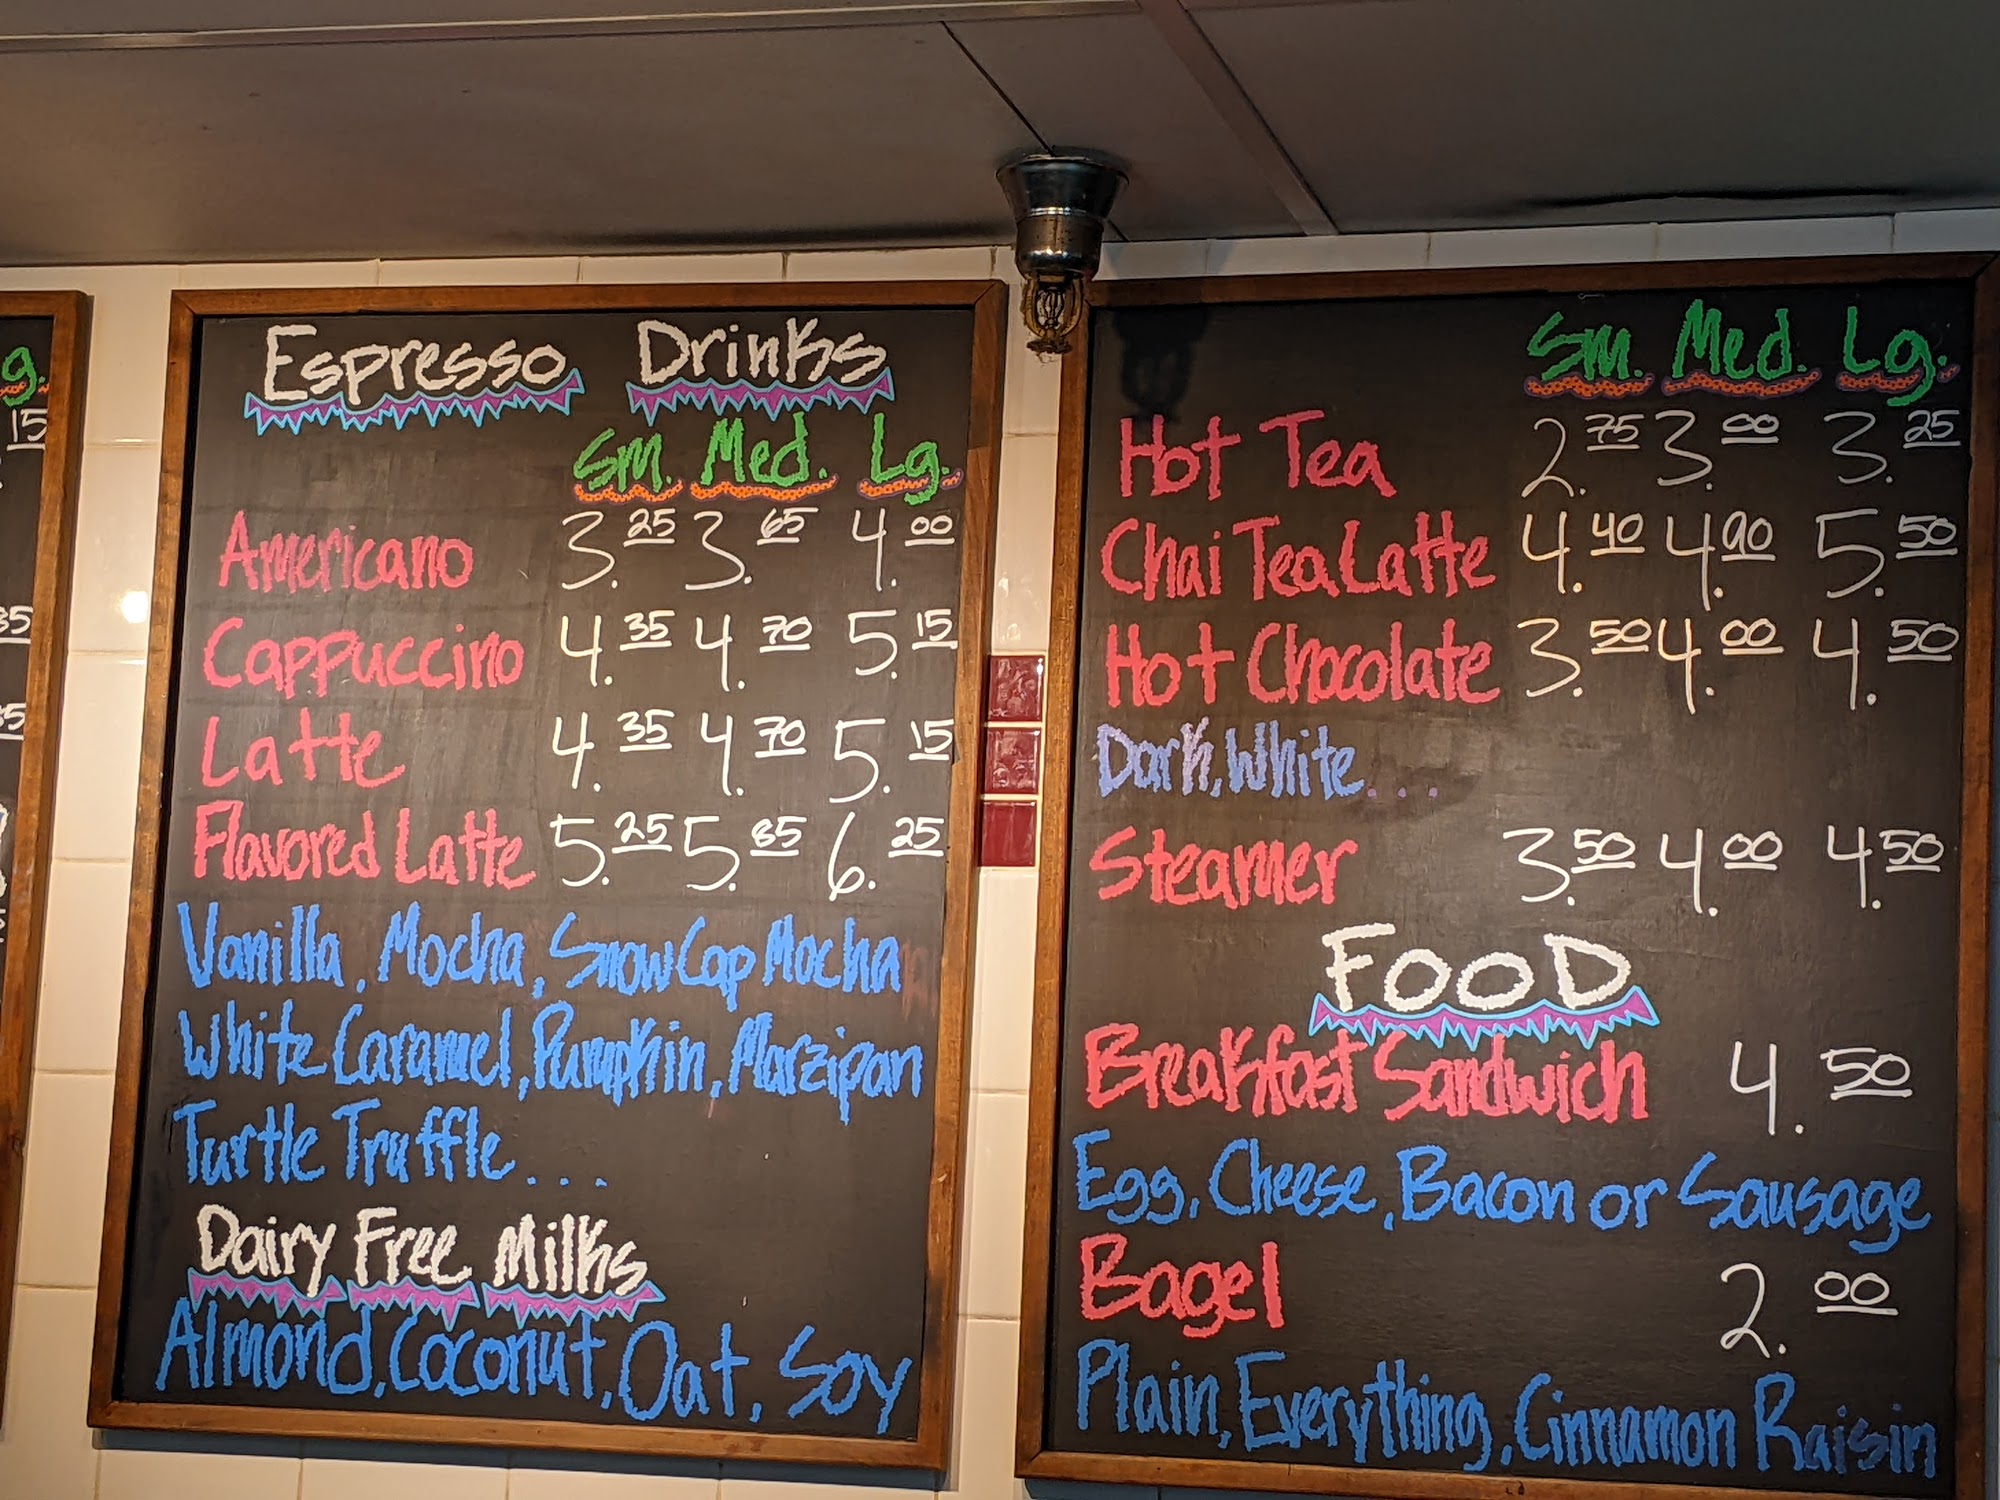 g.
15
35
35
Espresso Drinks
Sm. Med. Lg.
Americano 3.25 3.65 4.00
Cappuccino 4.35 4.70 5.15
Latte 4.35 4.70 5.15
Flavored Latte 5.25 5.85 6.25
Vanilla, Mocha, Snow Cap Mocha
White Caramel, Pumpkin, Marzipan
Turtle Truffle...
Dairy Free Milks
Almond, Coconut, Oat, Soy
Sm. Med. Lg.
Hot Tea 2.75 3.00 3.25
Chai Tea Latte 4.40 4.90 5.50
Hot Chocolate 3.50 4.00 4.50
Dark, White...
Steamer 3.50 4.00 4.50
FOOD
Breakfast Sandwich 4.50
Egg, Cheese, Bacon or Sausage
Bagel 2.00
Plain, Everything, Cinnamon Raisin